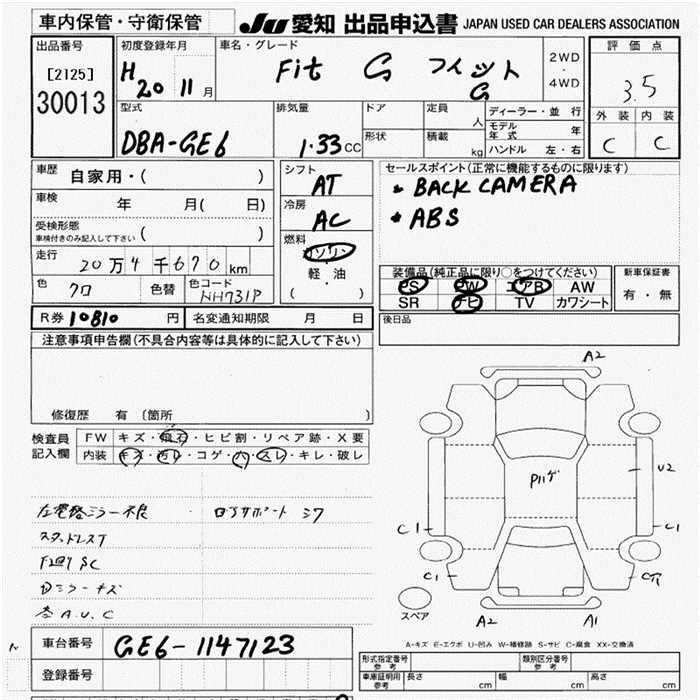 車内保管・守衛保管 JU 愛知 出品申込書 JAPAN USED CAR DEALERS ASSOCIATION
出品番号 初度登録年月 車名・グレード 2WD ・ 4WD 評価点
[2125] H 20 11月 Fit G フィット G 3.5
30013
型式 排気量 ドア 定員 人 ディーラー・並行 外装 内装
DBA-GE6 1.33 CC 形状 積載 kg モデル年式 年 C C
ハンドル 左・右
車歴 自家用・( )
シフト AT
セールスポイント(正常に機能するものに限ります)
• BACK CAMERA
• ABS
車検 年 月( 日)
冷房 AC
受検形態
車検付きのみ記入して下さい ( )
燃料 ガソリン
軽・油
( )
走行 20万4千670km
色 クロ 色替 色コード NH731P
装備品(純正品に限り○をつけてください) 新車保証書
PS PW エアB AW 有・無
SR ナビ TV カワシート
R券 10810 円 名変通知期限 月 日
後日品
注意事項申告欄(不具合内容等は具体的に記入して下さい)
修復歴 有 〔箇所 〕
検査員 記入欄
FW キズ・飛石・ヒビ割・リペア跡・X要
内装 キズ・汚レ・コゲ・穴・スレ・キレ・破レ
スタッドレスT
A2
U2
C1 C1
C1 C穴
スペア A2 A1
A-キズ E-エクボ U-凹み W-補修跡 S-サビ C-腐食 XX-交換済
車台番号 GE6-1147123
登録番号
形式指定番号 参考 類別区分番号 参考
車庫証明用 参考 長さ cm 幅 cm 高さ cm